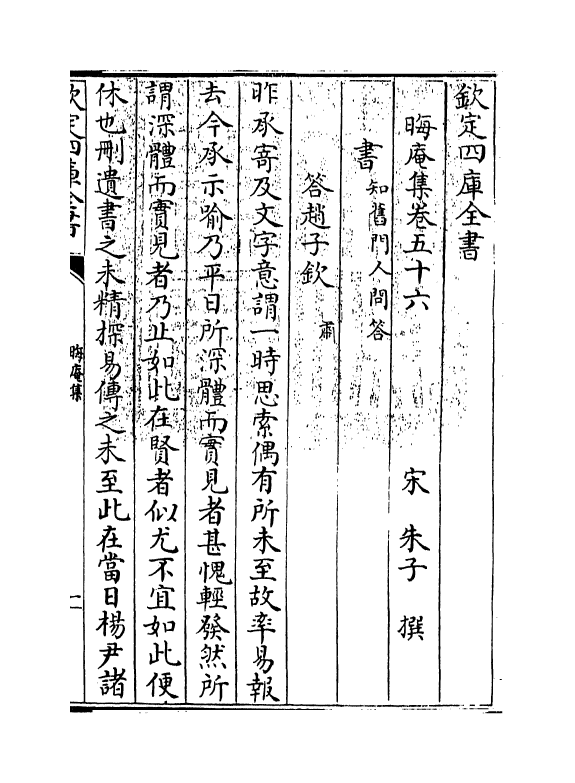 欽定四庫全書
晦庵集卷五十六
宋 朱子 撰
書知舊門人問答
答趙子欽
昨承寄及文字意謂一時思索偶有所未至故率易報
去今承示喻乃平日所深體而實見者甚愧輕發然所
謂深體而實見者乃止如此在賢者似尤不宜如此便
休也刪遺書之未精探易傳之未至此在當日楊尹諸
欽定四庫全書
晦庵集